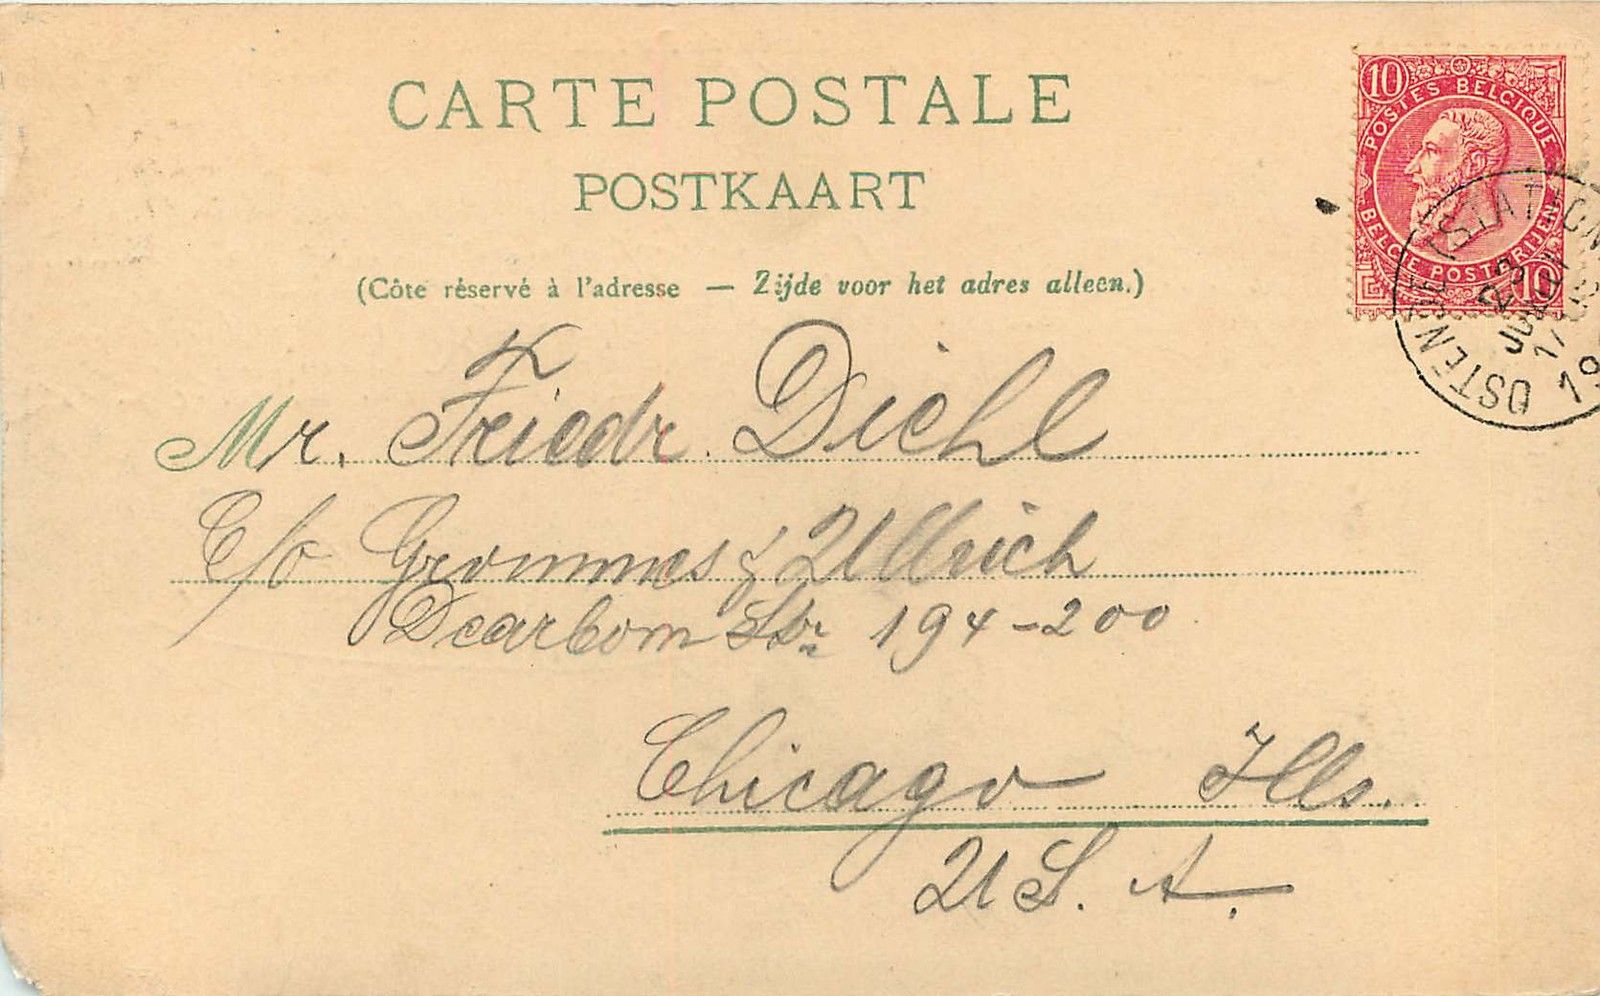 CARTE POSTALE
POSTKAART
(Côte réservé à l'adresse — Zijde voor het adres alleen.)
10
POSTES BELGIQUE
BELGIE POSTERIJEN
10
OSTENDE (STATION
23
JUIL
19
Mr. Friedr. Diehl
C/o Grommes & Ullrich
Dearborn Str 194-200
Chicago Ills.
U.S.A.